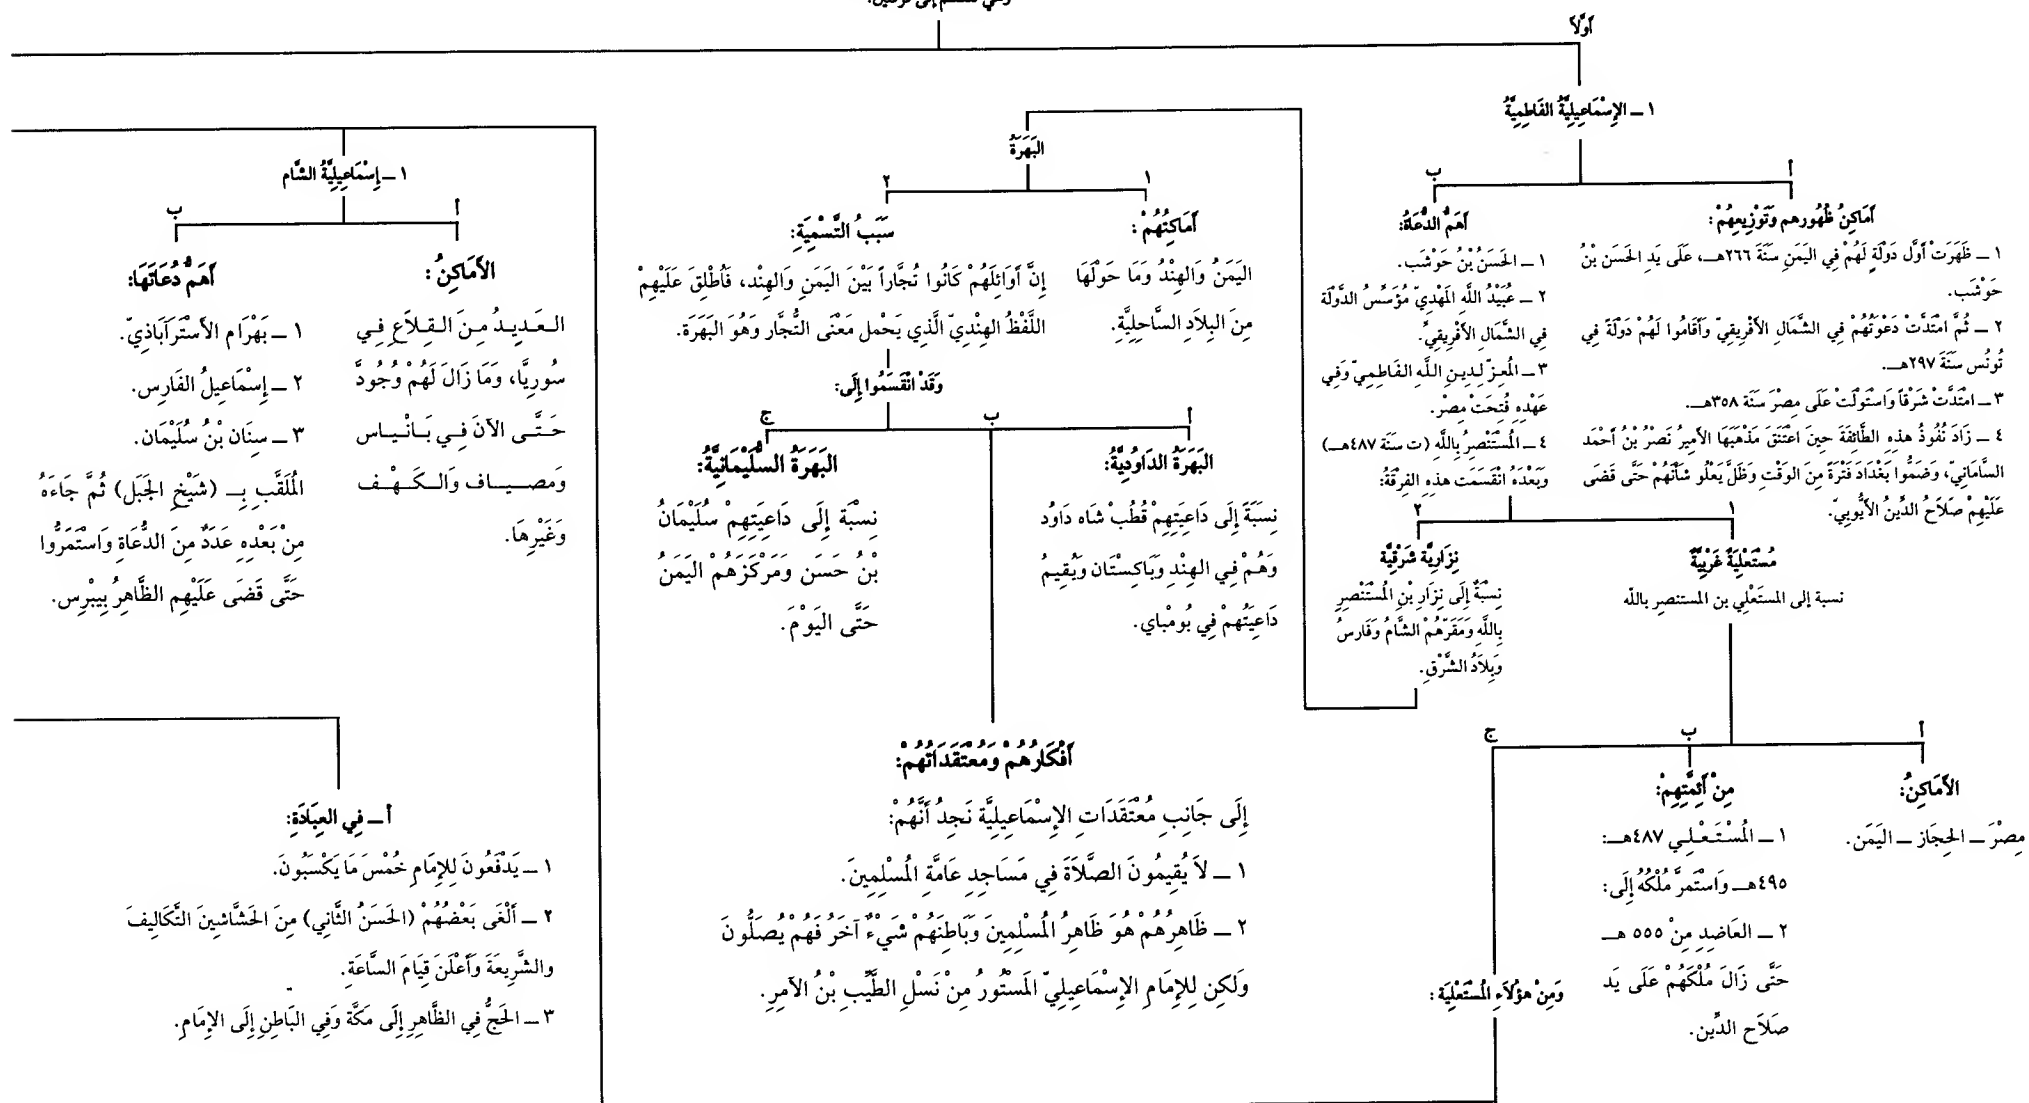 أَوَّلاً
١ ــ الإِسْمَاعِيلِيَّةُ الفَاطِمِيَّةُ
أ
أَمَاكِنُ ظُهُورِهِم وَتَوْزِيعِهِمْ:
١ ــ ظَهَرَتْ أَوَّل دَوْلَةٍ لَهُمْ فِي اليَمَنِ سَنَةَ ٢٦٦هـ، عَلَى يَدِ الحَسَن بْنُ
حَوْشَب.
٢ ــ ثُمَّ امْتَدَّتْ دَعْوَتُهُمْ فِي الشَّمَالِ الأَفْرِيقِيّ وَأَقَامُوا لَهُمْ دَوْلَةً فِي
تُونُس سَنَةَ ٢٩٧هـ.
٣ ــ امْتَدَّتْ شَرْقاً وَاسْتَوْلَتْ عَلَى مِصْرَ سَنَةَ ٣٥٨هـ.
٤ ــ زَادَ نُفُوذُ هذِهِ الطَّائِفَةِ حِينَ اعْتَنَقَ مَذْهَبَهَا الأَمِيرُ نَصْرُ بْنُ أَحْمَد
السَّامَانِيّ، وَضَمُّوا بَغْدَادَ فَتْرَةً مِنَ الوَقْتِ وَظَلَّ يَعْلُو شَأْنُهُمْ حَتَّى قَضَى
عَلَيْهِمْ صَلاَحُ الدِّينُ الأَيُّوبِيّ.
ب
أَهَمُّ الدُّعَاةُ:
١ ــ الحَسَنُ بْنُ حَوْشَب.
٢ ــ عُبَيْدُ اللَّهِ المَهْدِيّ مُؤَسِّسُ الدَّوْلَة
فِي الشَّمَالِ الأَفْرِيقِيِّ.
٣ ــ المُعِزّ لِدِينِ اللَّهِ الفَاطِمِيّ وَفِي
عَهْدِهِ فُتِحَتْ مِصْر.
٤ ــ المُسْتَنْصِرُ بِاللَّهِ (ت سَنَة ٤٨٧هـ)
وَبَعْدَهُ انْقَسَمَت هذِهِ الفِرْقَةُ:
١
مُسْتَعْلِيَةٌ غَرْبِيَّةٌ
نسبة إلى المستَعْلي بن المستنصر بالله
٢
نِزَارِيَّة شَرْقِيَّة
نِسْبَةٌ إِلَى نِزَارِ بْنِ المُسْتَنْصِرِ
بِاللَّهِ وَمَقَرّهُمْ الشَّامُ وَفَارِسُ
وَبِلاَدُ الشَّرْقِ.
أ
الأَمَاكِنُ:
مِصْرَ ــ الحِجَاز ــ اليَمَن.
ب
مِنْ أَئِمَّتِهِمْ:
١ ــ المُسْتَعْلِي ٤٨٧هـ:
٤٩٥هـ وَاسْتَمَرَّ مُلْكُهُ إِلَى:
٢ ــ العَاضِدِ مِنْ ٥٥٥ هـ
حَتَّى زَالَ مُلْكَهُمْ عَلَى يَد
صَلاَح الدِّين.
ج
وَمِنْ هؤُلاَءِ المُسْتَعْلِيَة:
البَهَرَةُ
١
أَمَاكِنُهُمْ:
اليَمَنُ وَالهِنْدُ وَمَا حَوْلَهَا
مِنَ البِلاَدِ السَّاحِلِيَّةِ.
٢
سَبَبُ التَّسْمِيَةِ:
إِنَّ أَوَائِلَهُمْ كَانُوا تُجَّاراً بَيْنَ اليَمَنِ وَالهِنْد، فَأُطْلِقَ عَلَيْهِمْ
اللَّفْظُ الهِنْدِيّ الَّذِي يَحْمل مَعْنَى التُّجَّار وَهُوَ البَهَرَة.
وَقَدْ انْقَسَمُوا إِلَى:
أ
البَهَرَةُ الدَاودِيَّةُ:
نِسَبَةً إِلَى دَاعِيَتِهِمْ قُطُبْ شَاه دَاوُد
وَهُمْ فِي الهِنْدِ وَبَاكِسْتَان وَيُقِيمُ
دَاعِيَتُهمْ فِي بُومْبَاي.
ب
ج
البَهَرَةُ السُّلَيْمَانِيَّةُ:
نِسْبَة إِلَى دَاعِيَتِهِمْ سُلَيْمَانُ
بْنُ حَسَن وَمَرْكَزَهُم اليَمَنُ
حَتَّى اليَوْمَ.
أَفْكَارُهُمْ وَمُعْتَقَدَاتُهُمْ:
إِلَى جَانِبِ مُعْتَقَدَاتِ الإِسْمَاعِيلِيَّة نَجِدُ أَنَّهُمْ:
١ ــ لاَ يُقِيمُونَ الصَّلاَةَ فِي مَسَاجِدِ عَامَّةِ المُسْلِمِينَ.
٢ ــ ظَاهِرُهُمْ هُوَ ظَاهِرُ المُسْلِمِينَ وَبَاطِنَهُمْ شَيْءٌ آخَرُ فَهُمْ يُصَلُّونَ
وَلكِن لِلإِمَامِ الإِسْمَاعِيلِيّ المَسْتُورُ مِنْ نَسْلِ الطَّيِّب بْنُ الآمِرِ.
١ ــ إِسْمَاعِيلِيَّةُ الشَّام
أ
الأَمَاكِنُ:
العَدِيدُ مِنَ القِلاَعِ فِي
سُورِيَّا، وَمَا زَالَ لَهُمْ وُجُودٌ
حَتَّى الآنَ فِي بَانْيَاس
وَمَصيَاف وَالكَهْف
وَغَيْرِهَا.
ب
أَهَمُّ دُعَاتَهَا:
١ ــ بَهْرَام الأَسْتَرَابَاذِيّ.
٢ ــ إِسْمَاعِيلُ الفَارِس.
٣ ــ سِنَان بْنُ سُلَيْمَان.
المُلَقَّب بِــ (شَيْخِ الجَبَل) ثُمَّ جَاءَهُ
مِنْ بَعْدِهِ عَدَدٌ مِنَ الدُّعَاةِ وَاسْتَمَرُّوا
حَتَّى قَضَى عَلَيْهِم الظَّاهِرُ بِيبْرِس.
أ ــ فِي العِبَادَةِ:
١ ــ يَدْفَعُونَ لِلإِمَامِ خُمْسَ مَا يَكْسَبُونَ.
٢ ــ أَلْغَى بَعْضُهُمْ (الحَسَنُ الثَّانِي) مِنَ الحَشَّاشِينَ التَّكَالِيفَ
والشَّرِيعَةَ وَأَعْلَنَ قِيَامَ السَّاعَةِ.
٣ ــ الحَجُّ فِي الظَّاهِرِ إِلَى مَكَّة وَفِي البَاطِنِ إِلَى الإِمَامِ.